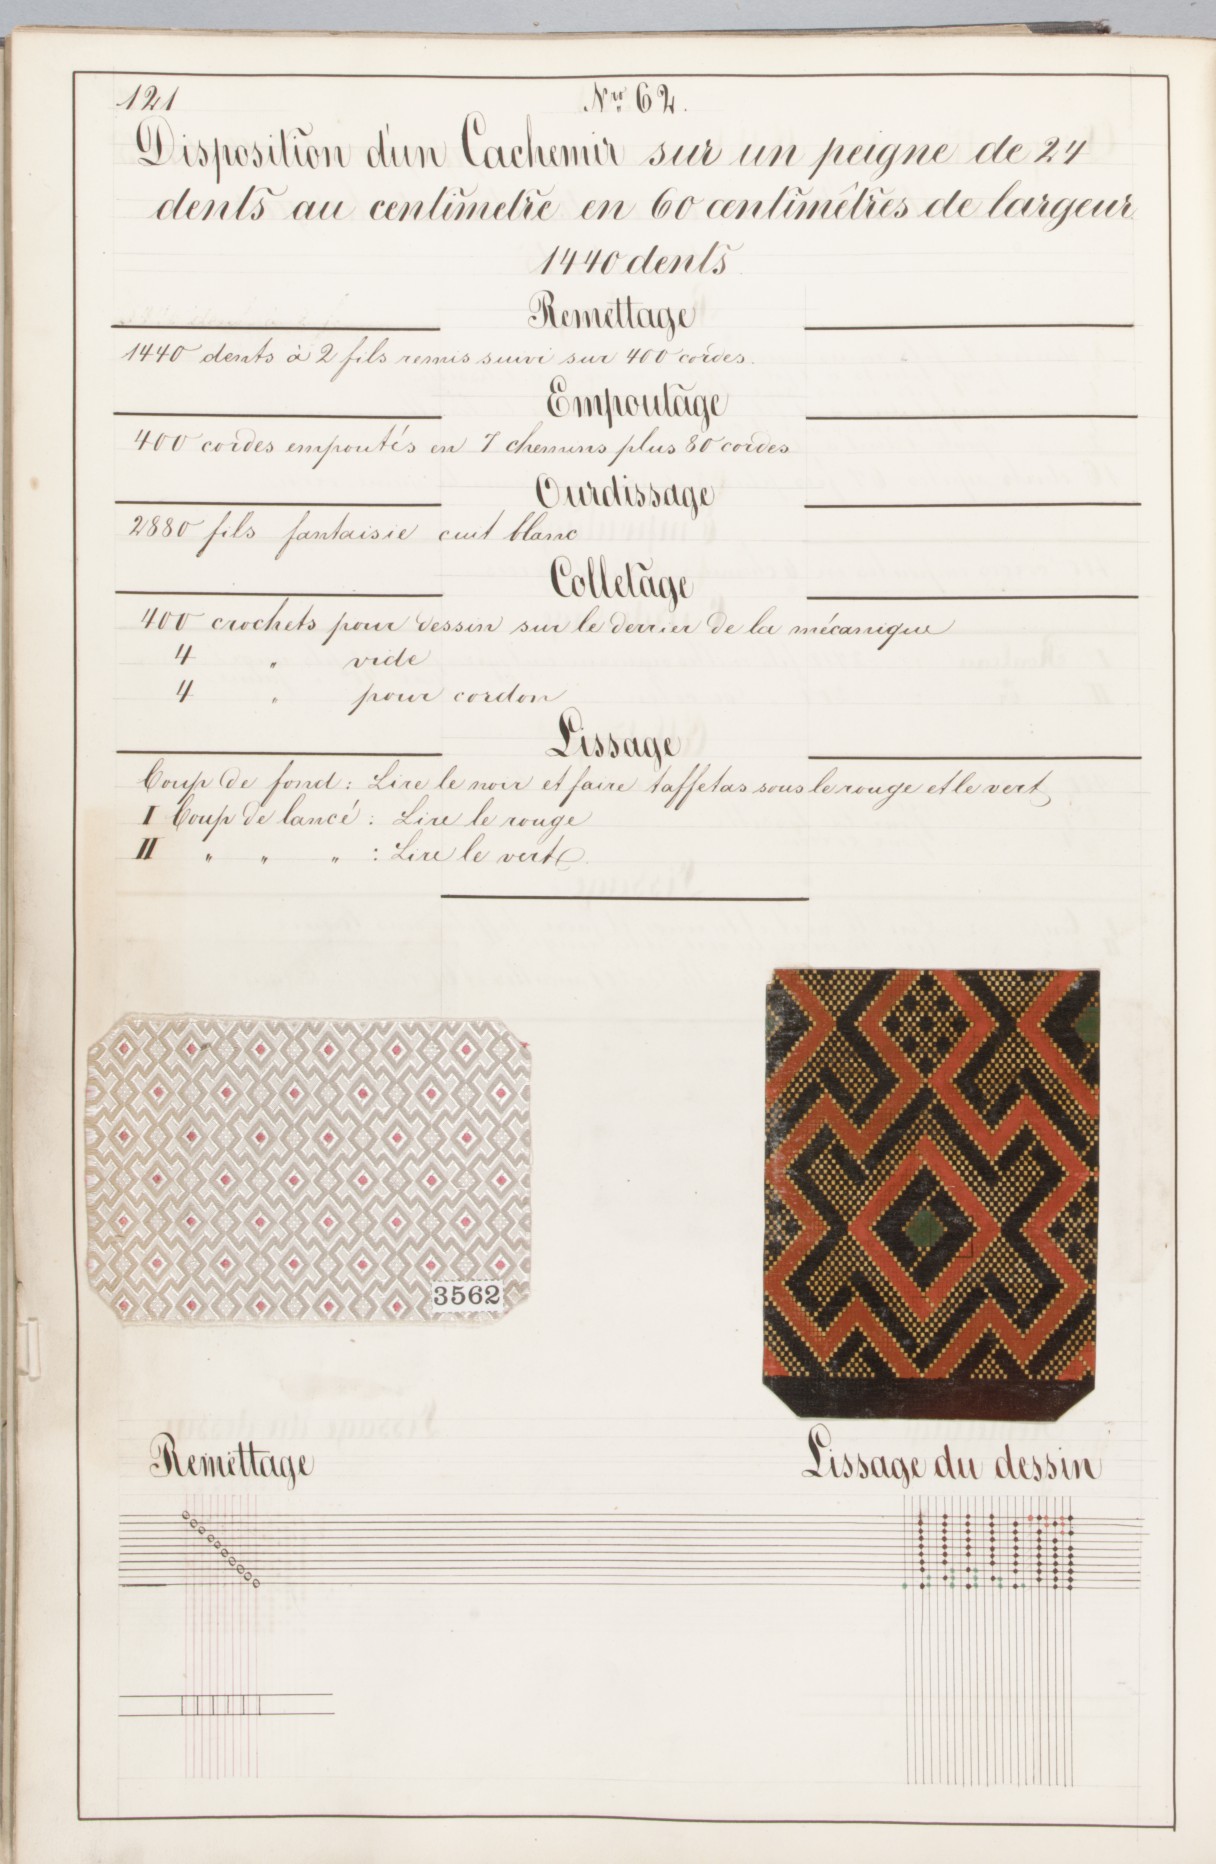 121
Nro 62.
Disposition d'un Cachemir sur un peigne de 24
dents au centimetre en 60 centimêtres de largeur
1440 dents
Remettage
1440 dents à 2 fils remis suivi sur 400 cordes.
Empoutage
400 cordes empoutés en 7 chemins plus 80 cordes
Ourdissage
2880 fils fantaisie cuit blanc
Colletage
400 crochets pour dessin sur le derrier de la mécanique
4 " vide
4 " pour cordon
Lissage
Coup de fond : Lire le noir et faire taffetas sous le rouge et le vert
I Coup de lancé : Lire le rouge
II " " " : Lire le vert
3562
Remettage
Lissage du dessin